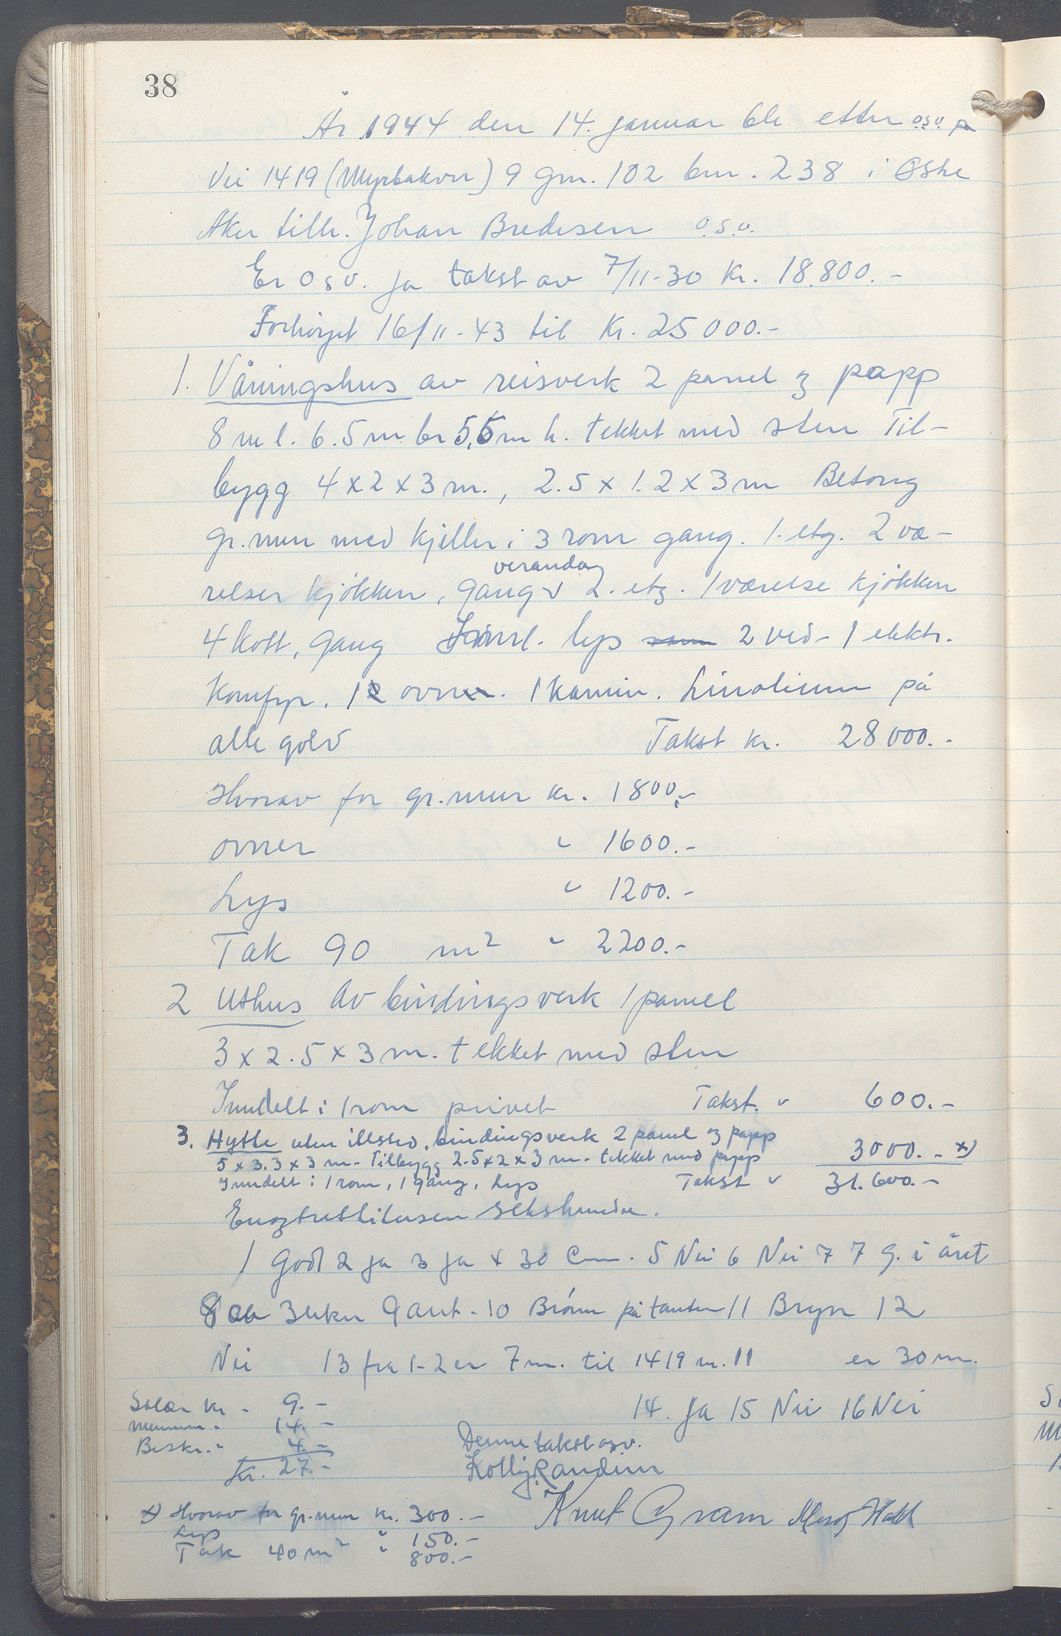 38
År 1944 den 14. januar ble etter o.s.v. på
Vei 1419 (Myrbakken) 9 Gnr. 102 bnr. 238 i Østre
Aker tilh. Johan Bredesen o.s.v.
Er o s v. Ja takst av 7/11-30 Kr. 18.800.-
Forhøyet 16/11-43 til Kr. 25000.-
1. Våningshus av reisverk 2 panel og papp
8 m l. 6.5 m br 5,5 m h. tekket med sten Til-
bygg 4 x 2 x 3 m., 2.5 x 1.2 x 3 m Betong
gr.mur med kjeller i 3 rom gang. 1. etg. 2 væ-
veranda
relser kjøkken, gang v 2. etg. 1 værelse kjøkken
4 kott, gang Innl. lys 2 ved- 1 elektr.
Komfyr. 12 ovner. 1 kamin. Linolium på
alle golv Takst kr. 28000.-
Hvorav for gr.mur kr. 1800.-
ovner " 1600.-
Lys " 1200.-
Tak 90 m2 " 2200.-
2 Uthus Av bindingsverk 1 panel
3 x 2.5 x 3 m. tekket med sten
Inndelt i 1 rom privet Takst. " 600.-
3. Hytte uten illsted. bindingsverk 2 panel og papp
5 x 3.3 x 3 m. Tilbygg 2.5 x 2 x 3 m. tekket med papp 3000.- x)
Inndelt i 1 rom, 1 gang, Lys Takst " 31.600.-
Enogtrettitusen sekshundre.
1 God 2 Ja 3 Ja 4 30 Cm. 5 Nei 6 Nei 7 7 g. i året
8 ca 3 uker 9 ant. 10 Brønn på tomten 11 Bryn 12
Nei 13 fra 1-2 er 7 m. til 1419 nr. 11 er 30 m.
14. Ja 15 Nei 16 Nei
Salær kr. 9.-
14.-
Beskr. " 4.-
Kr. 27.-
Denne takst osv.
Knut Gram
x) Hvorav for gr.mur kr. 300.-
Lys " 150.-
Tak 40 m2 " 800.-